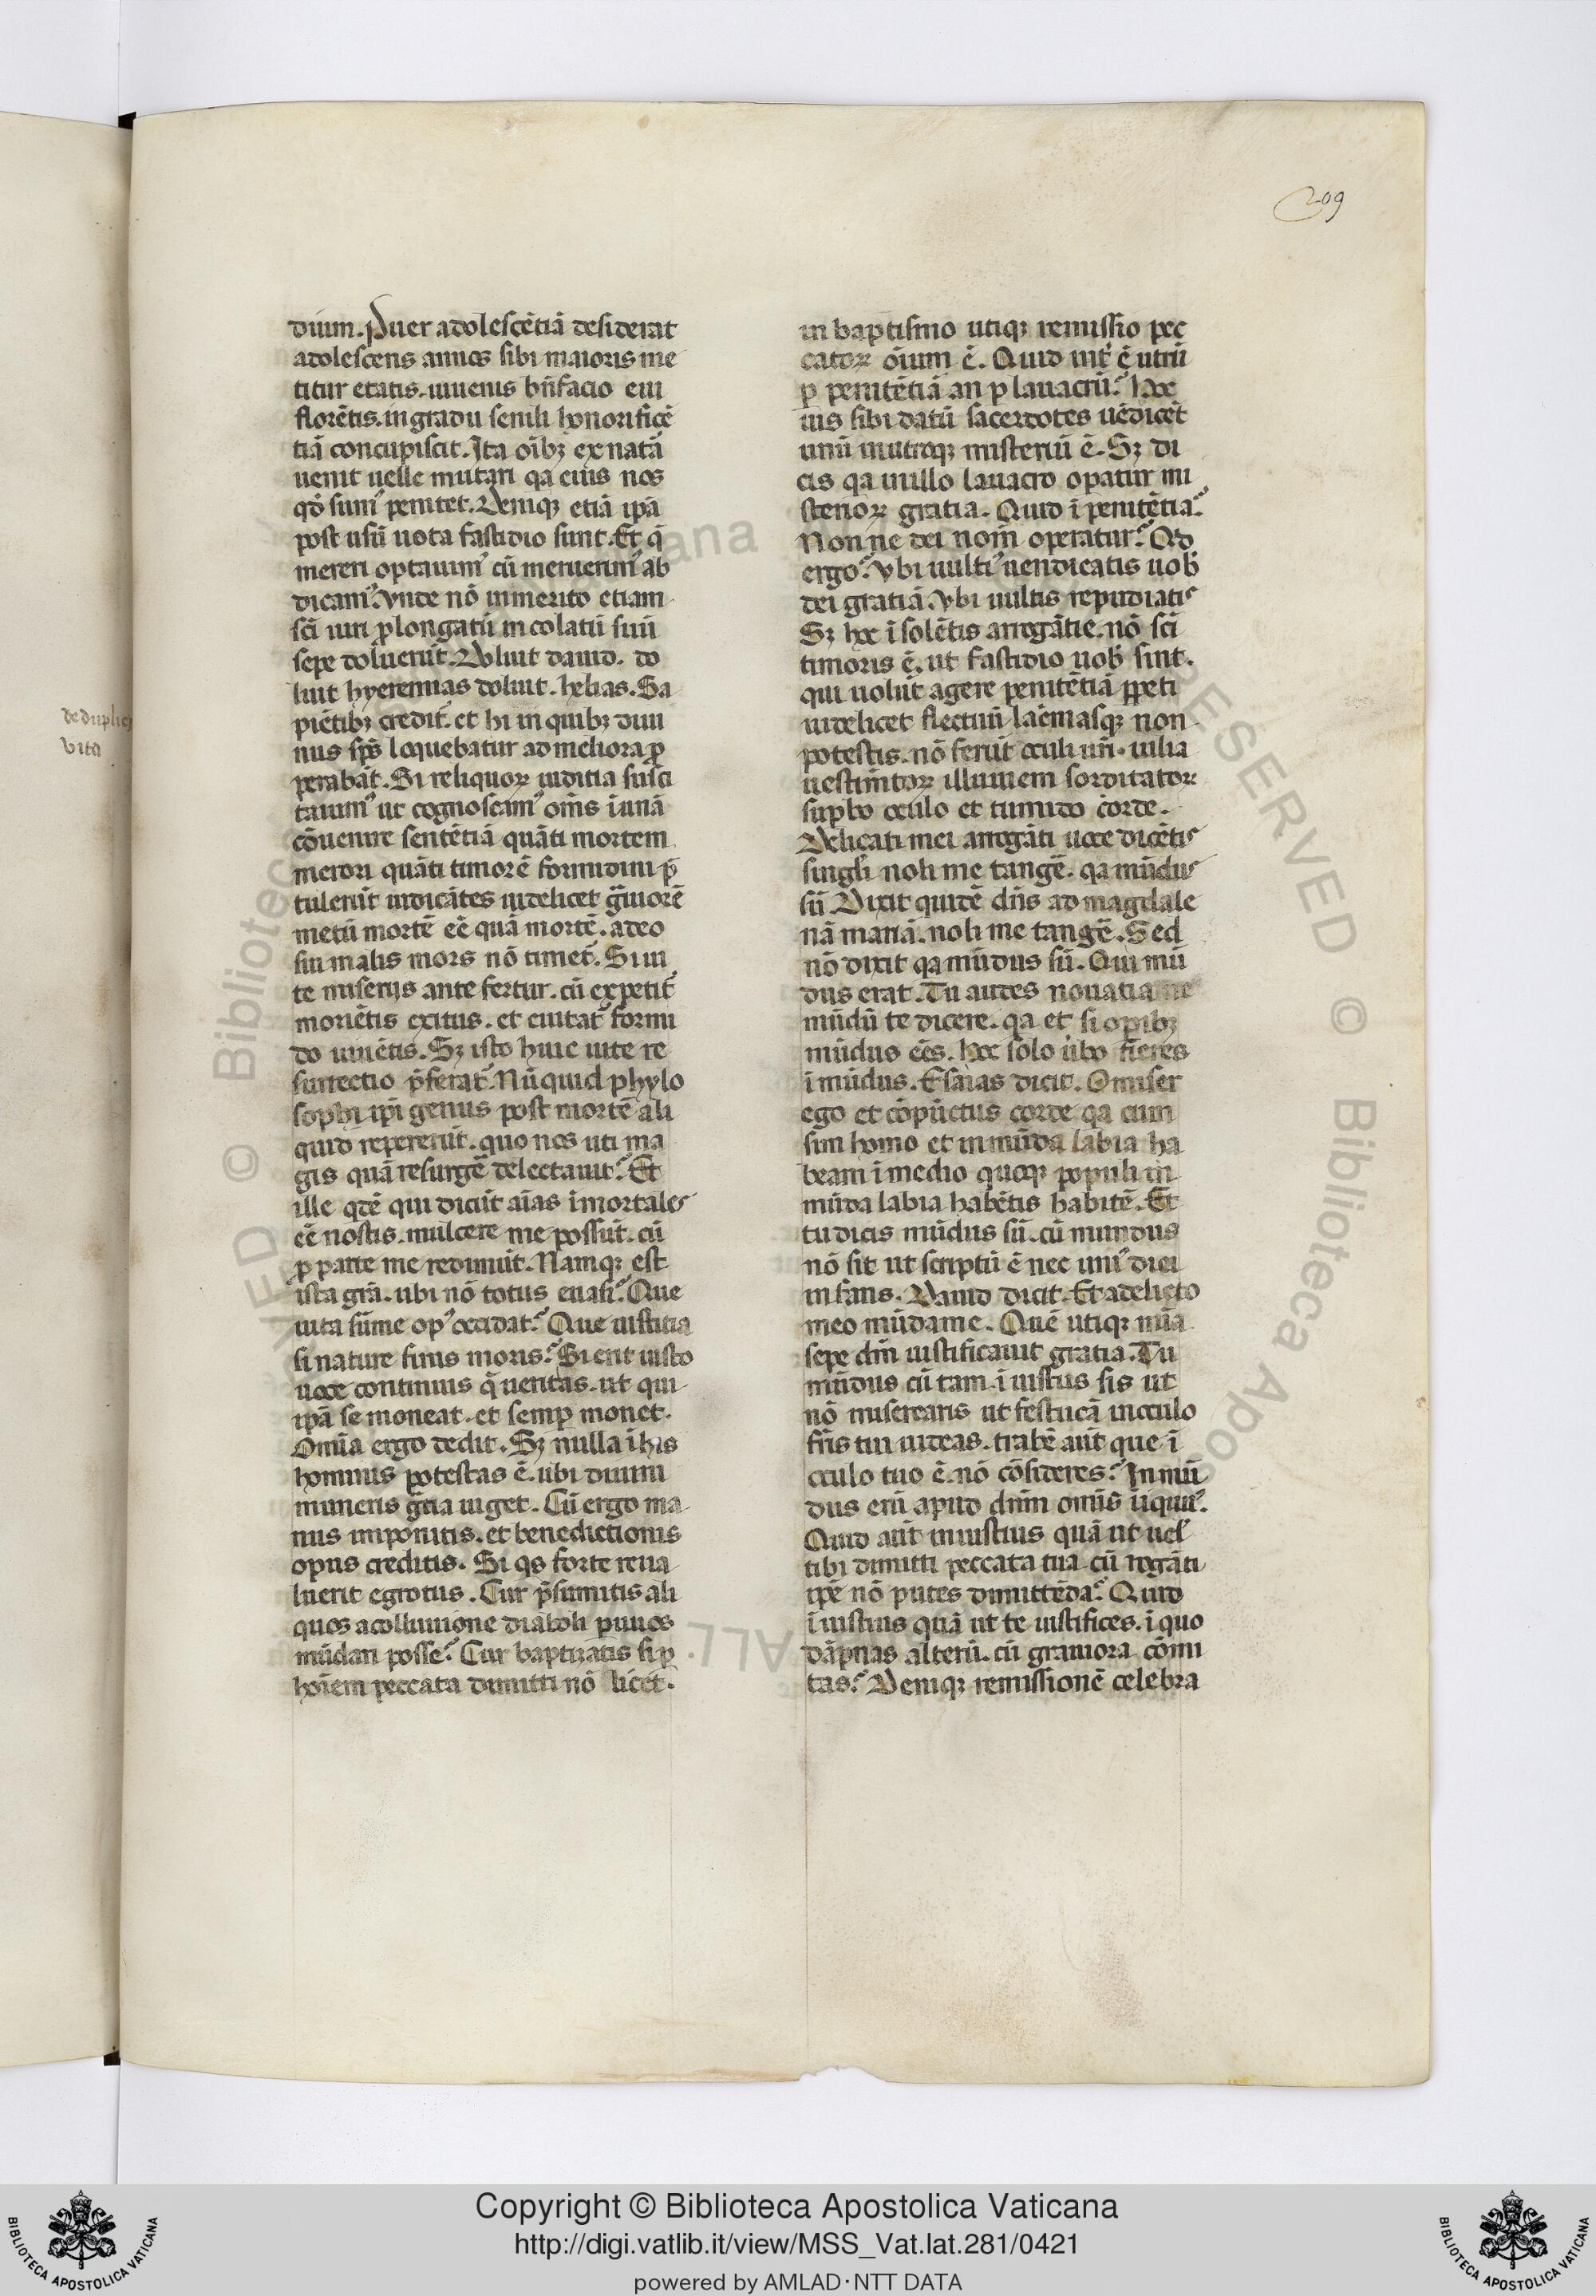 209
de duplici
vita
dium. Puer adolescẽtiã desiderat
adolescens annos sibi maioris me
titur etatis. iuuenis bñficio eui
florẽtis. in gradu senili honorificẽ
tiã concupiscit. Ita oĩbꝫ ex natã
uenit uelle mutari qa eius nos
qđ sumꝰ penitet. Deniqꝫ etiã ipã
post usũ uota fastidio sunt. Et q̃
mereri optauimꝰ cũ meruerimꝰ ab
dicamꝰ. Vnde nõ inmerito etiam
sc̃i uiri ꝓlongatũ incolatũ suũ
sepe doluerũt. Doluit dauid. do
luit hyeremias doluit. helias. Sa
piẽtibꝫ credit̃. et hi in quibꝫ diui
nus sp̃s loquebatur ad meliora ꝓ
perabãt. Si reliquoꝝ iuditia susci
tauimꝰ ut cognoscamꝰ om̃s i unã
cõuenire sentẽtiã quãti mortem
merori quãti timorẽ formidini p̃
tulerũt iudicãtes uidelicet g̃uiorẽ
metũ mortẽ eẽ quã mortẽ. adeo
sui malis mors nõ timet̃. S; ui
te miserijs ante fertur. cũ expetit̃
moriẽtis exitus. et euitat̃ formi
do uiuẽtis. Sꝫ isto huic uite re
surrectio p̃ferat̃. Nũquid phylo
sophi ip̃i genus post mortẽ ali
quid repererũt. quo nos uti ma
gis quã resurgẽ delectauit? Et
ille qdẽ qui dicũt aĩas ĩmortales
eẽ nostis. mulcere me possũt. cũ
ꝓ parte me redimũt. Namqꝫ est
ista grã. ubi nõ totus euasi? Que
uita sũme opꝰ occidat? Que iustitia
si nature finis mors? Si erit iusto
uoce continuus q̃ ueritas. ut qui
ipã se moneat. et semꝑ monet.
Omĩa ergo dedit. Sꝫ nulla ĩ his
hominis potestas ẽ. ubi diuini
muneris gr̃tia uiget. Cũ ergo ma
nus imponitis. et benedictionis
opus creditis. Si qs forte reua
luerit egrotus. Cur p̃sumitis ali
quos a colluuione diaboli p uuos
mũdari posse? Cur baptizatis si ꝑ
hoĩem peccata dimitti nõ licet.
in baptismo utiqꝫ remissio pec
catoꝝ oĩum ẽ. Quid int̃ ẽ utrũ
ꝑ penitẽtiã an ꝑ lauacrũ? Hoc
ius sibi datũ sacerdotes uẽdicẽt
unũ in utroqꝫ misteriũ ẽ. Sꝫ di
cis qa in illo lauacro opatur mi
sterioꝝ gratia. Quid ĩ penitẽtia?
Non ne dei nom̃ operatur? Qd
ergo? Vbi uultiꝰ uendicatis uob̃
dei gratiã. Vbi uultis repudiatis
Sꝫ hoc ĩsolẽtis arrogãtie. nõ sc̃i
timoris ẽ. ut fastidio uob̃ sint.
qui uolũt agere penitẽtiã ꝑpeti
uidelicet flectuũ lac̃masqꝫ non
potestis. nõ ferũt oculi ur̃i. uilia
uestim̃toꝝ illuuiem sorditatoꝝ
suꝑbo oculo et tumido corde.
Delicati mei arrogãti uoce dicẽtis
singl̃i noli me tangẽ. qa mũdus
sũ. Dixit quidẽ dñs ad magdale
nã mariã. noli me tangẽ. Sed
nõ dixit qa mũdus sũ. Qui mũ
dus erat. Tu audes nouatiane
mũdũ te dicere. qa et si opibꝫ
mũdus eẽs. hoc solo ũbo fieres
ĩmũdus. Esaias dicit. O miser
ego et cõpũctus corde qa cum
sim homo et inmũda labia ha
beam ĩ medio quoqꝫ populi in
mũda labia habẽtis habitẽ. Et
tu dicis mũdus sũ. cũ mundus
nõ sit ut scriptũ ẽ nec uniꝰ diei
infans. Dauid dicit. Et a delicto
meo mũda me. Quẽ utiqꝫ mĩa
sepe dñi iustificauit gratia. Tu
mũdus cũ tam ĩiustus sis ut
nõ miserearis ut festucã in oculo
fr̃is tui uideas. trabẽ aũt que ĩ
oculo tuo ẽ. nõ cõsideres? In mũ
dus eni apud dñm om̃s iĩquiꝰ.
Quid aũt iniustius quã ut uel̃
tibi dimitti peccata tua cũ rogãti
ip̃e nõ putes dimittẽda? Quid
ĩiustius quã ut te iustifices. ĩ quo
dãpnas alterũ. cũ grauiora cõmi
tas? Deniqꝫ remissionẽ celebra
Copyright © Biblioteca Apostolica Vaticana
http://digi.vatlib.it/view/MSS_Vat.lat.281/0421
powered by AMLAD·NTT DATA